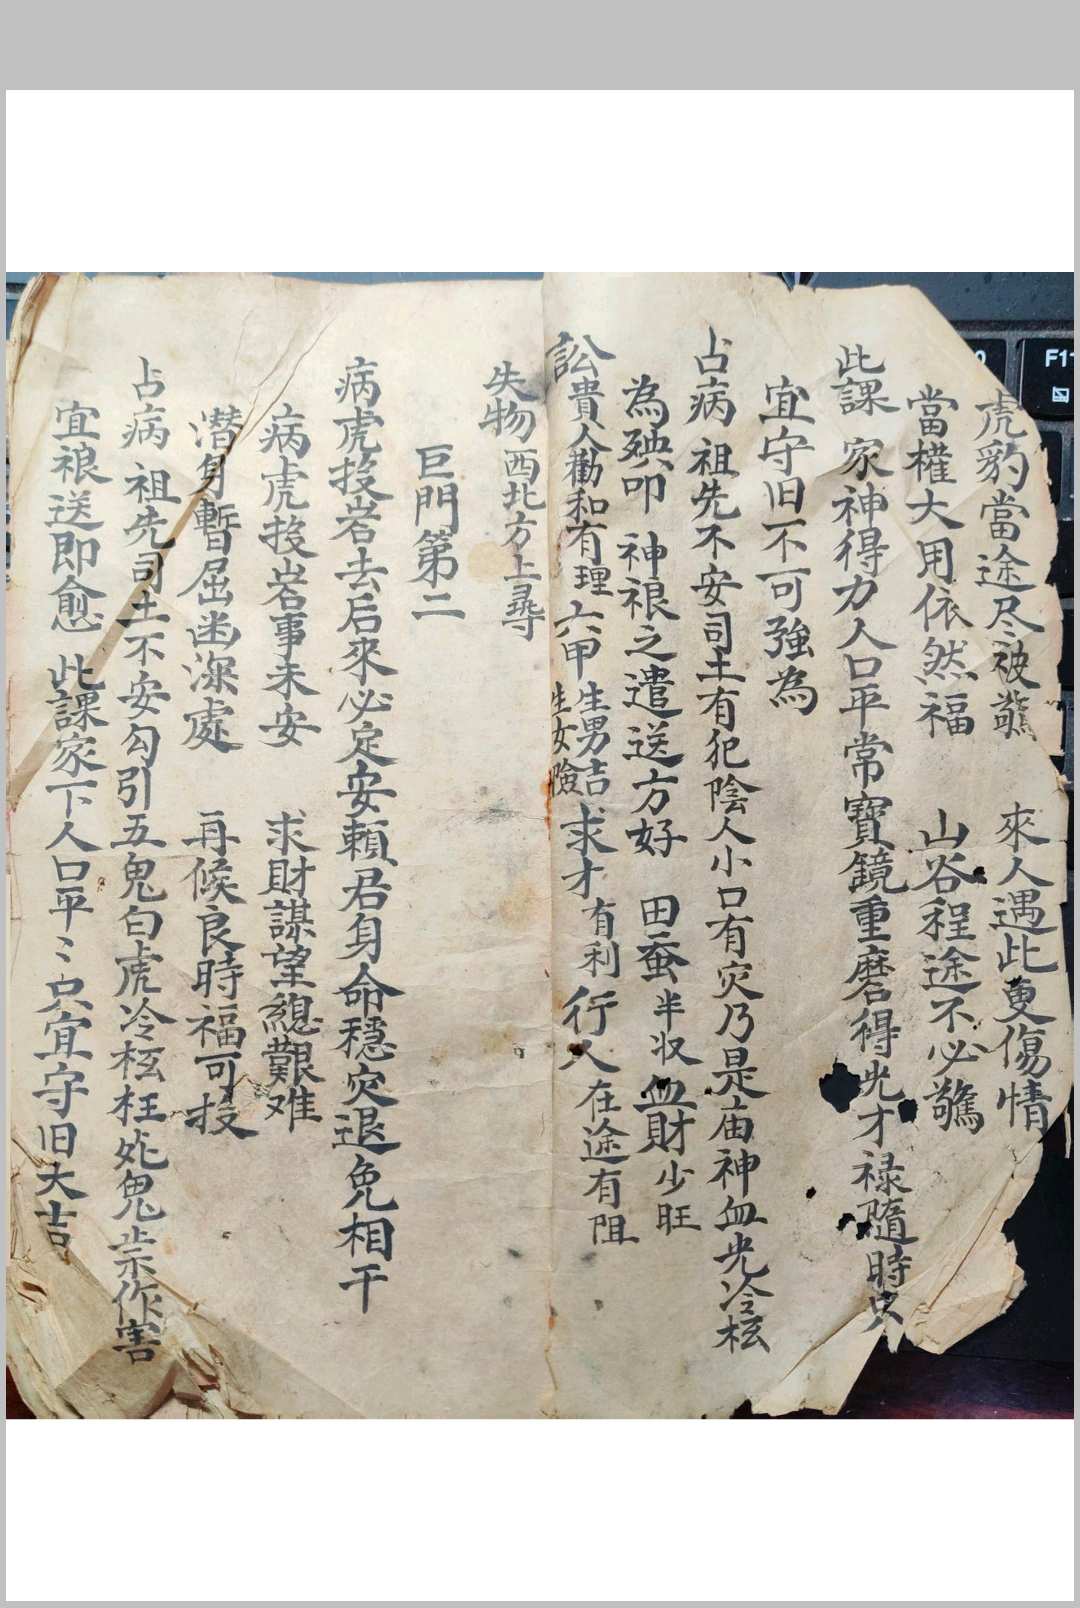 虎豹當途尽被驚 來人遇此更傷情
當權大用依然福 山谷程途不必驚
此課 家神得力人口平常寶鏡重磨得光才祿隨時只
宜守旧不可強為
占病 祖先不安司土有犯陰人小口有灾乃是庙神血光冷柉
為殃叩 神之遣送方好 田蚕半収血財少旺
訟貴人勸和有理六甲生男吉生女險求才有利行人在途有阻
失物西北方上尋
巨門第二
病虎投岩去后來必定安賴君身命穩灾退免相干
病虎投岩事未安 求財謀望緫艱难
潛身暫屈幽深處 再候良時福可投
占病 祖先司土不安勾引五鬼白虎冷柉枉死鬼祟作害
宜送即愈 此課家下人口平〻只宜守旧大吉
F11